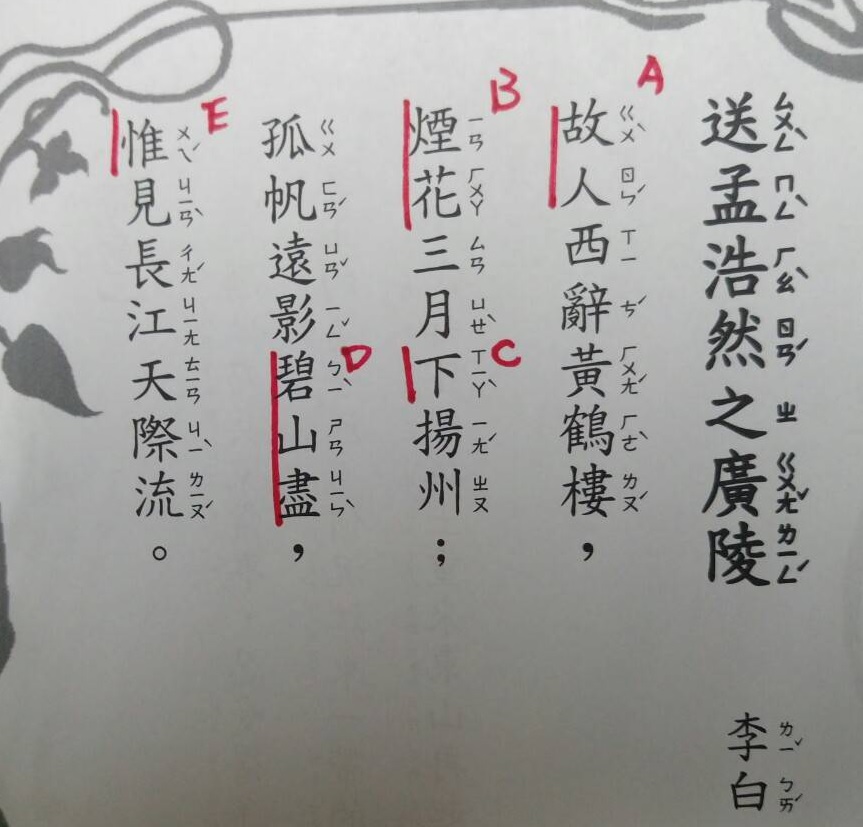 送孟浩然之廣陵
ㄙㄨㄥˋ ㄇㄥˋ ㄏㄠˋ ㄖㄢˊ ㄓ ㄍㄨㄤˇ ㄌㄧㄥˊ
李白
ㄌㄧˇ ㄅㄞˊ
A
故人西辭黃鶴樓，
ㄍㄨˋ ㄖㄣˊ ㄒㄧ ㄘˊ ㄏㄨㄤˊ ㄏㄜˋ ㄌㄡˊ
B
煙花三月下揚州；
ㄧㄢ ㄏㄨㄚ ㄙㄢ ㄩㄝˋ ㄒㄧㄚˋ ㄧㄤˊ ㄓㄡ
C
孤帆遠影碧山盡，
ㄍㄨ ㄈㄢˊ ㄩㄢˇ ㄧㄥˇ ㄅㄧˋ ㄕㄢ ㄐㄧㄣˋ
D
惟見長江天際流。
ㄨㄟˊ ㄐㄧㄢˋ ㄔㄤˊ ㄐㄧㄤ ㄊㄧㄢ ㄐㄧˋ ㄌㄧㄡˊ
E